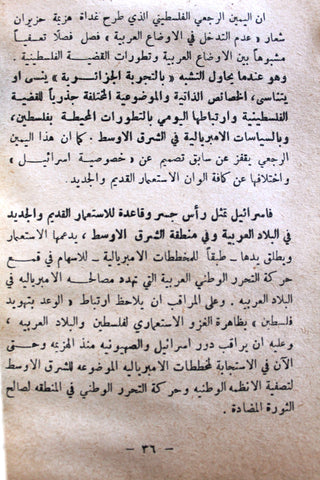 ان اليمين الرجعي الفلسطيني الذي طرح غداة هزيمة حزيران
شعار « عدم التدخل في الاوضاع العربية » فصل فصلا تعسفياً
مشبوهاً بين الاوضاع العربية وتطورات القضية الفلسطينية .
وهو عندما يحاول التشبه « بالتجربة الجزائرية » ينسى او
يتناسى ، الخصائص الذاتية والموضوعية المختلفة جذرياً للقضية
الفلسطينية وارتباطها اليومي بالتطورات المحيطة بفلسطين،
وبالسياسات الامبريالية في الشرق الاوسط . كما ان هذا اليمين
الرجعي يقفز عن سابق تصميم عن « خصوصية اسرائيل »
واختلافها عن كافة الوان الاستعمار القديم والجديد.
فاسرائيل تمثل رأس جسر وقاعدة للاستعمار القديم والجديد
في البلاد العربية وفي منطقة الشرق الاوسط ، يدعمها الاستعمار
ويطلق يدها ـ طبقاً للمخططات الامبريالية ـ للاسهام في قمع
حركة التحرر الوطني العربية التي تهدد مصالحه الامبريالية في
البلاد العربيه . وعلى المراقب ان يلاحظ ارتباط « الوعد بتهويد
فلسطين » بظاهرة الغزو الاستعماري لفلسطين والبلاد العربيه ،
وعليه ان يراقب دور اسرائيل والصهيونيه منذ الهزيمه وحتى
الآن في الاستجابة للمخططات الامبرياليه الموضوعه للشرق الاوسط
لتصفية الانظمه الوطنيه وحركة التحرر الوطني في المنطقه لصالح
الثورة المضادة .
— ٣٦ —